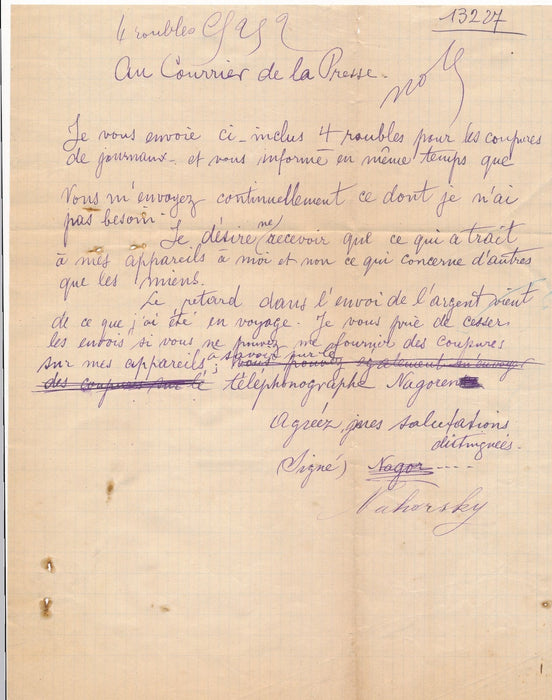 13227
4 roubles
Au Courrier de la Presse.
Je vous envoie ci-inclus 4 roubles pour les coupures
de journaux - et vous informe en même temps que
Vous m'envoyez continuellement ce dont je n'ai
pas besoin.
Je désire (ne) recevoir que ce qui a trait
à mes appareils à moi et non ce qui concerne d'autres
que les miens.
Le retard dans l'envoi de l'argent vient
de ce que j'ai été en voyage. Je vous prie de cesser
les envois si vous ne pouvez me fournir des coupures
sur mes appareils, à savoir sur le vous pouvez également m'envoyer
des coupures sur le téléphonographe Nagoren
Agréez mes salutations
distinguées.
(Signé) Nagor ----
Nahorsky